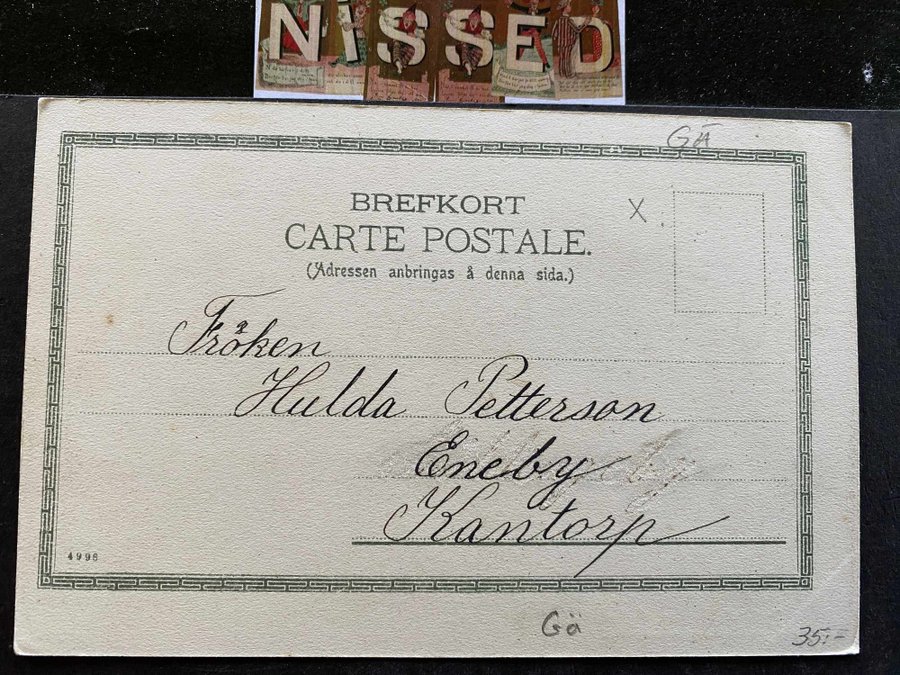 NISSED
GÄ
BREFKORT
X
CARTE POSTALE.
(Adressen anbringas å denna sida.)
Fröken
Hulda Petterson
Eneby
Kantorp
4996
Gä
35:-